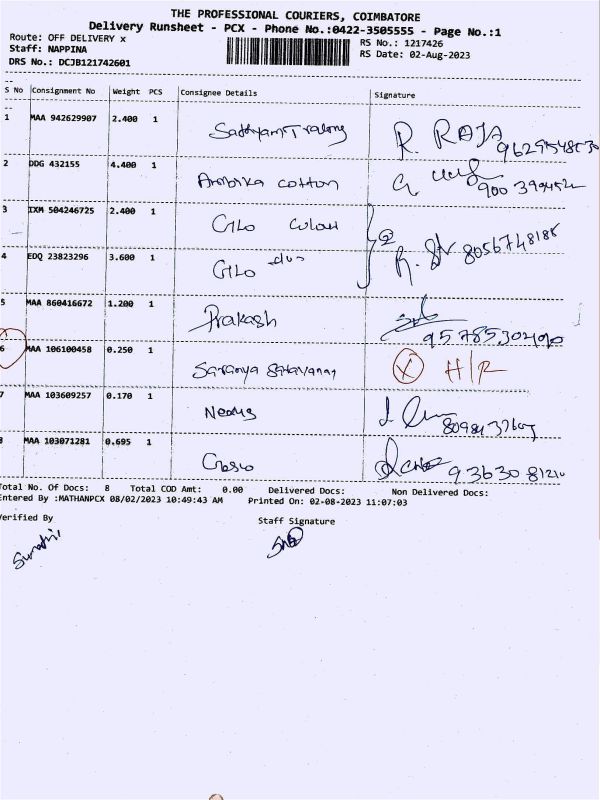 THE PROFESSIONAL COURIERS, COIMBATORE
Delivery Runsheet - PCX - Phone No.:0422-3505555 - Page No.:1
Route: OFF DELIVERY x
RS No.: 1217426
Staff: NAPPINA
RS Date: 02-Aug-2023
DRS No.: DCJB121742601
S No Consignment No Weight PCS Consignee Details Signature
1 MAA 942629907 2.400 1 R. RAJA
2 DDG 432155 4.400 1 Ambika cotton
3 IXM 504246725 2.400 1
2
8056748188
4 EDQ 23823296 3.600 1
5 MAA 860416672 1.200 1 Prakash
6 MAA 106100458 0.250 1 Saranya X H/R
7 MAA 103609257 0.170 1
8 MAA 103071281 0.695 1 93630 81210
Total No. Of Docs: 8 Total COD Amt: 0.00 Delivered Docs: Non Delivered Docs:
Entered By :MATHANPCX 08/02/2023 10:49:43 AM Printed On: 02-08-2023 11:07:03
Verified By Staff Signature